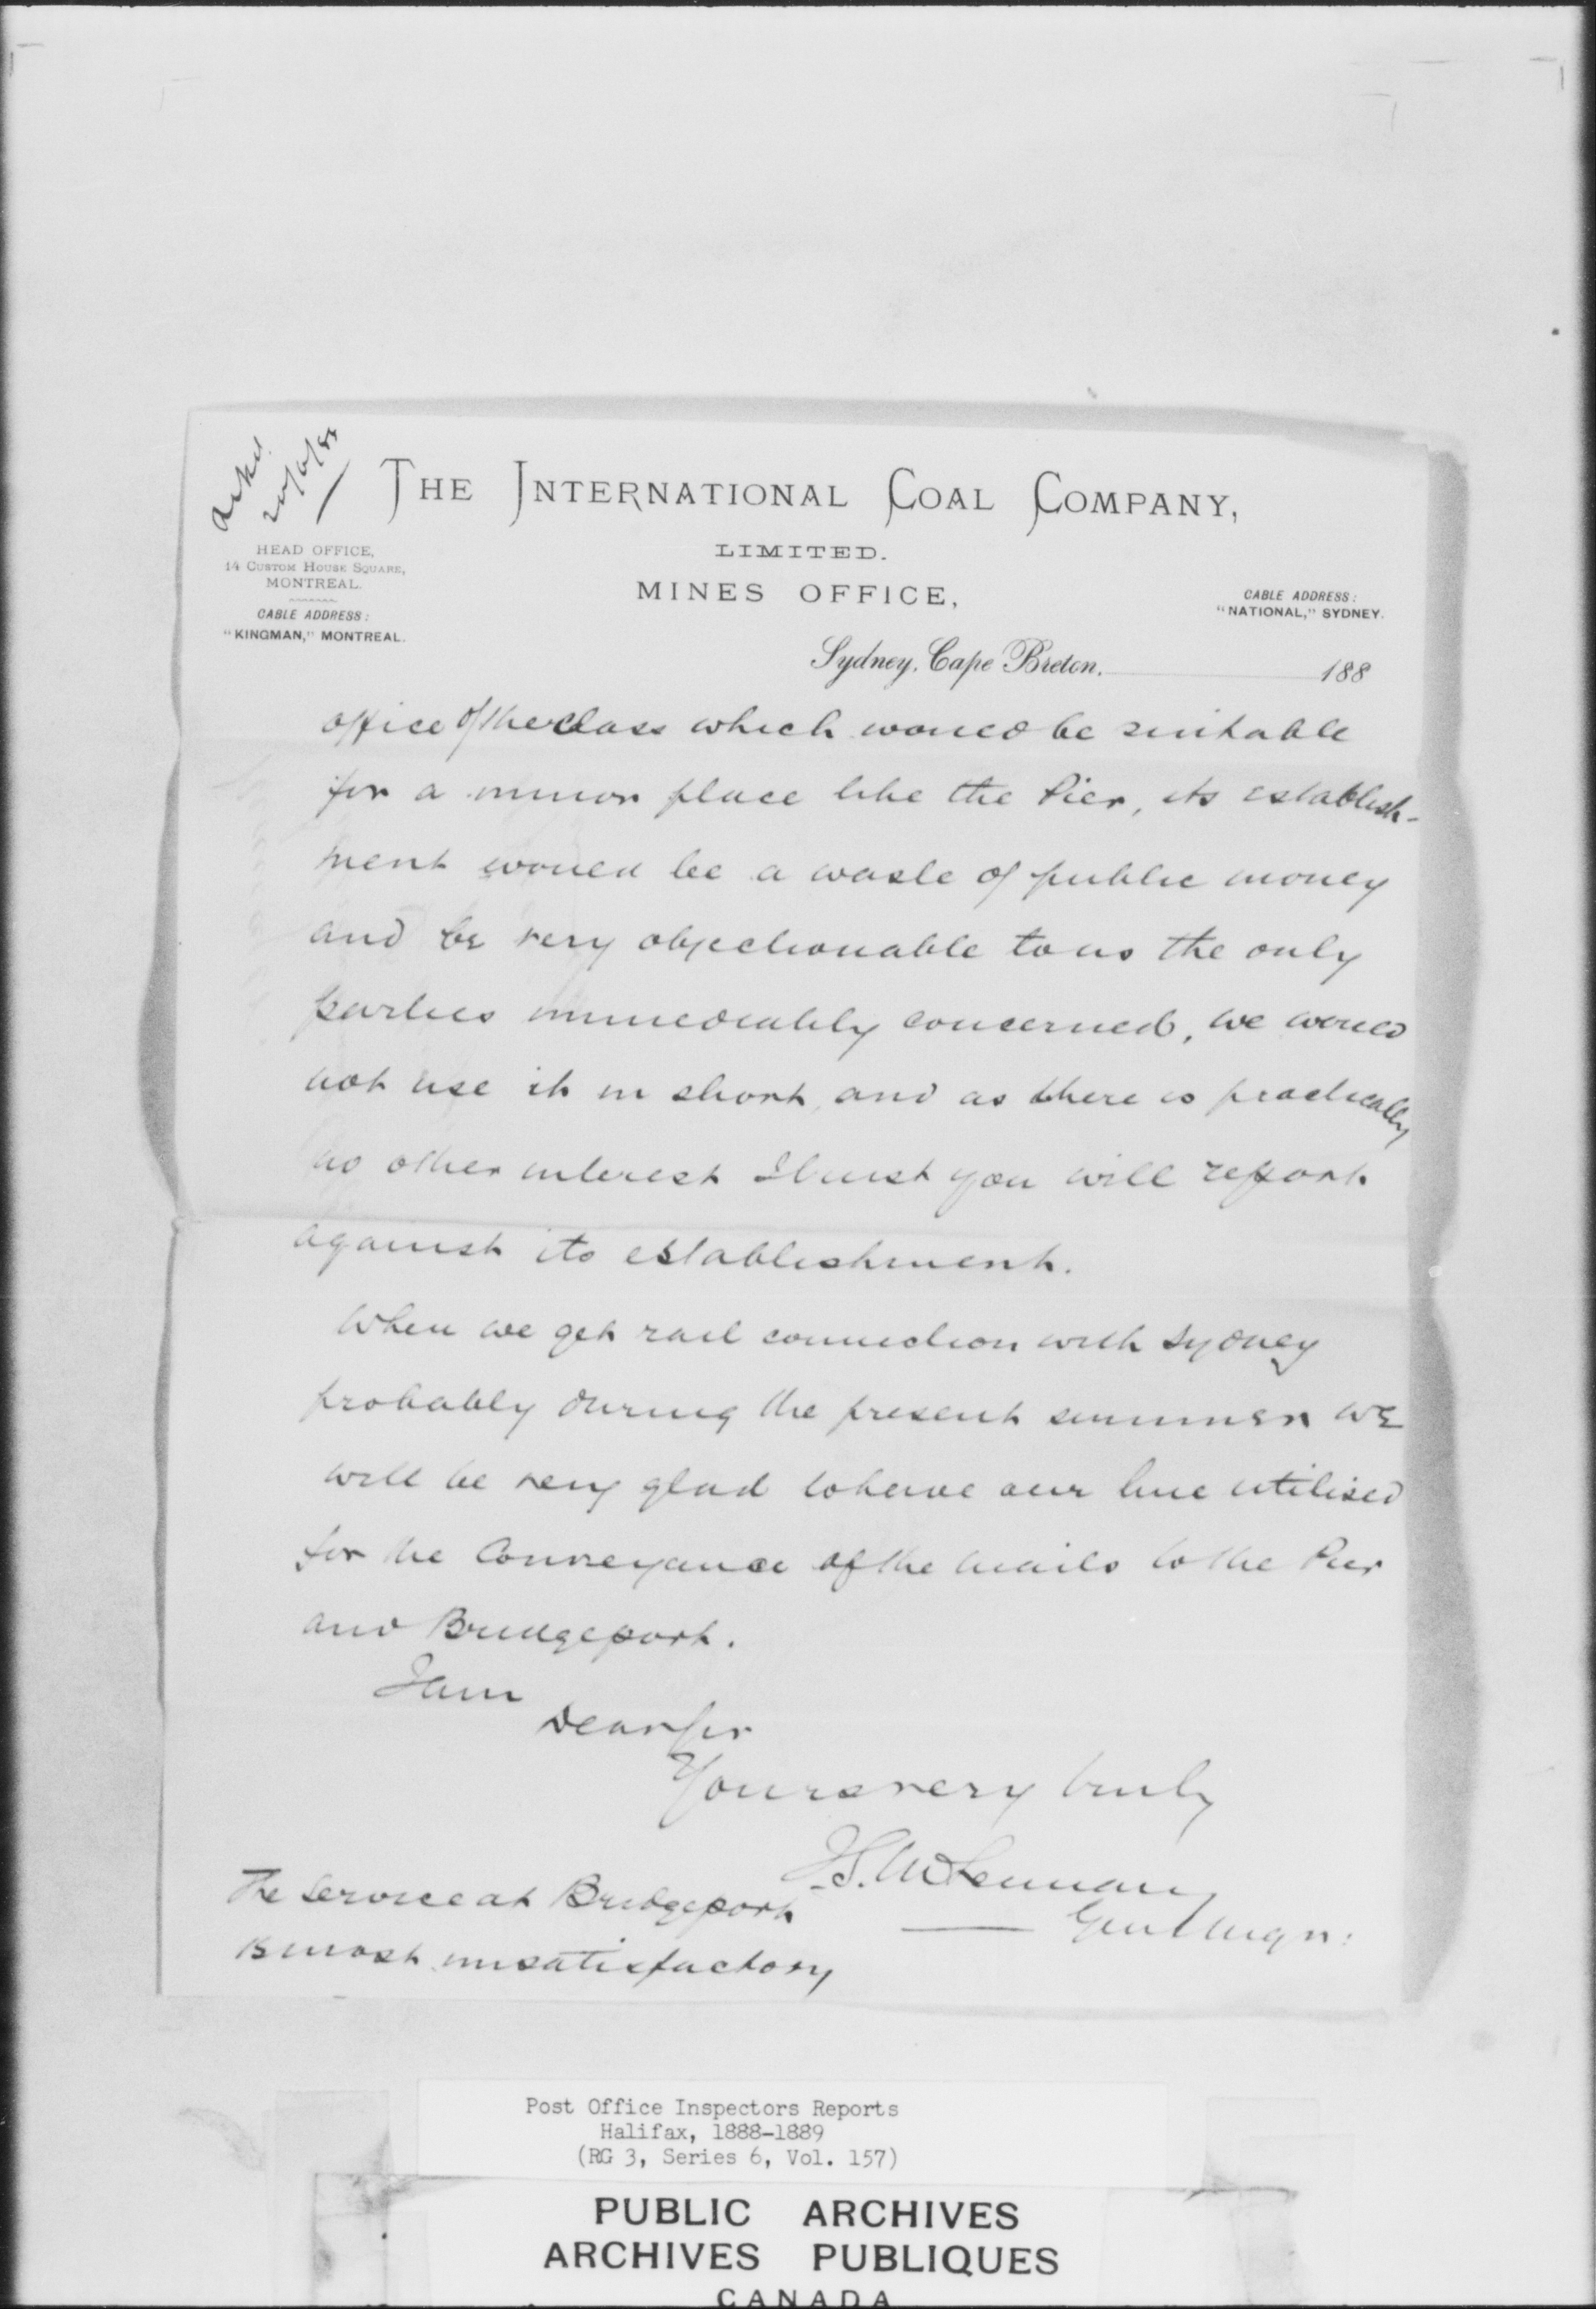 Ackd.
20/6/88
THE INTERNATIONAL COAL COMPANY,
LIMITED.
MINES OFFICE,
HEAD OFFICE,
14 CUSTOM HOUSE SQUARE,
MONTREAL.
CABLE ADDRESS:
"KINGMAN," MONTREAL.
CABLE ADDRESS:
"NATIONAL," SYDNEY.
Sydney, Cape Breton, 188
office of the class which would be suitable
for a minor place like the Pier, its establish-
ment would be a waste of public money
and be very objectionable to us the only
parties immediately concerned, we would
not use it in short, and as there is practically
no other interest I trust you will report
against its establishment.
When we get rail connection with Sydney
probably during the present summer we
will be very glad to have our line utilised
for the Conveyance of the mails to the Pier
and Bridgeport.
I am
Dear Sir
Yours very truly
J.S. McLennan
Genl Mgr:
The Service at Bridgeport
is most unsatisfactory
Post Office Inspectors Reports
Halifax, 1888-1889
(RG 3, Series 6, Vol. 157)
PUBLIC ARCHIVES
ARCHIVES PUBLIQUES
CANADA